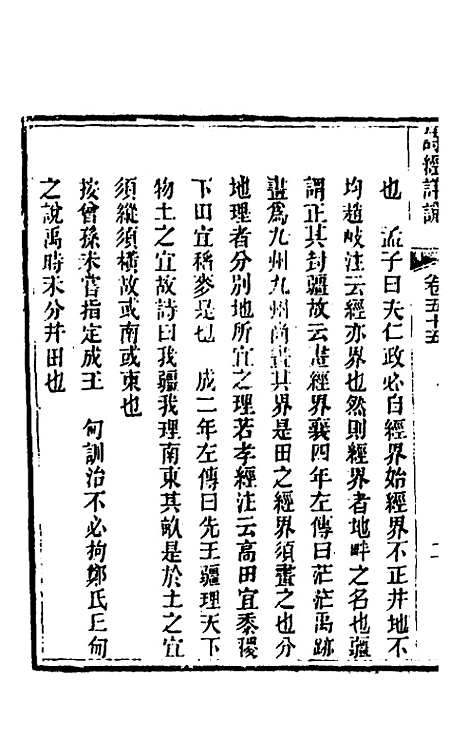 詩經詳說
卷五十五
二
也　孟子曰夫仁政必自經界始經界不正井地不
均趙岐注云經亦界也然則經界者地畔之名也疆
謂正其封疆故云畫經界襄四年左傳曰茫茫禹跡
畫爲九州九州尚畫其界是田之經界須畫之也分
地理者分別地所宜之理若孝經注云高田宜黍稷
下田宜稻麥是也　成二年左傳曰先王疆理天下
物土之宜故詩曰我疆我理南東其畝是於土之宜
須縱須橫故或南或東也
按曾孫未嘗指定成王　甸訓治不必拘鄭氏丘甸
之說禹時未分井田也